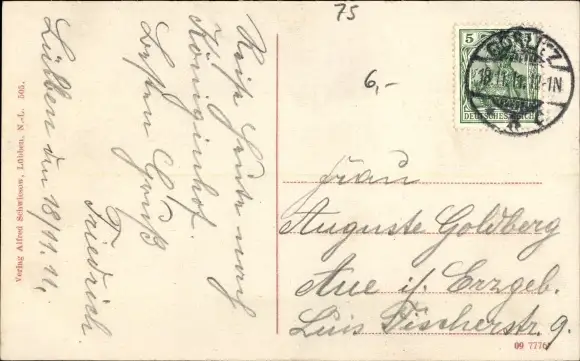 75
6,-
Lübben den 18/11.11.
Reise heute nach
Königinhof.
Besten Gruß
Friedrich.
Verlag Alfred Schwiesow, Lübben, N.-L. 505.
5
DEUTSCHES REICH
GÖRLITZ
18.11.11.
Frau
Auguste Goldberg
Aue i/. Erzgeb.
Luis Fischerstr. 9.
09 7776